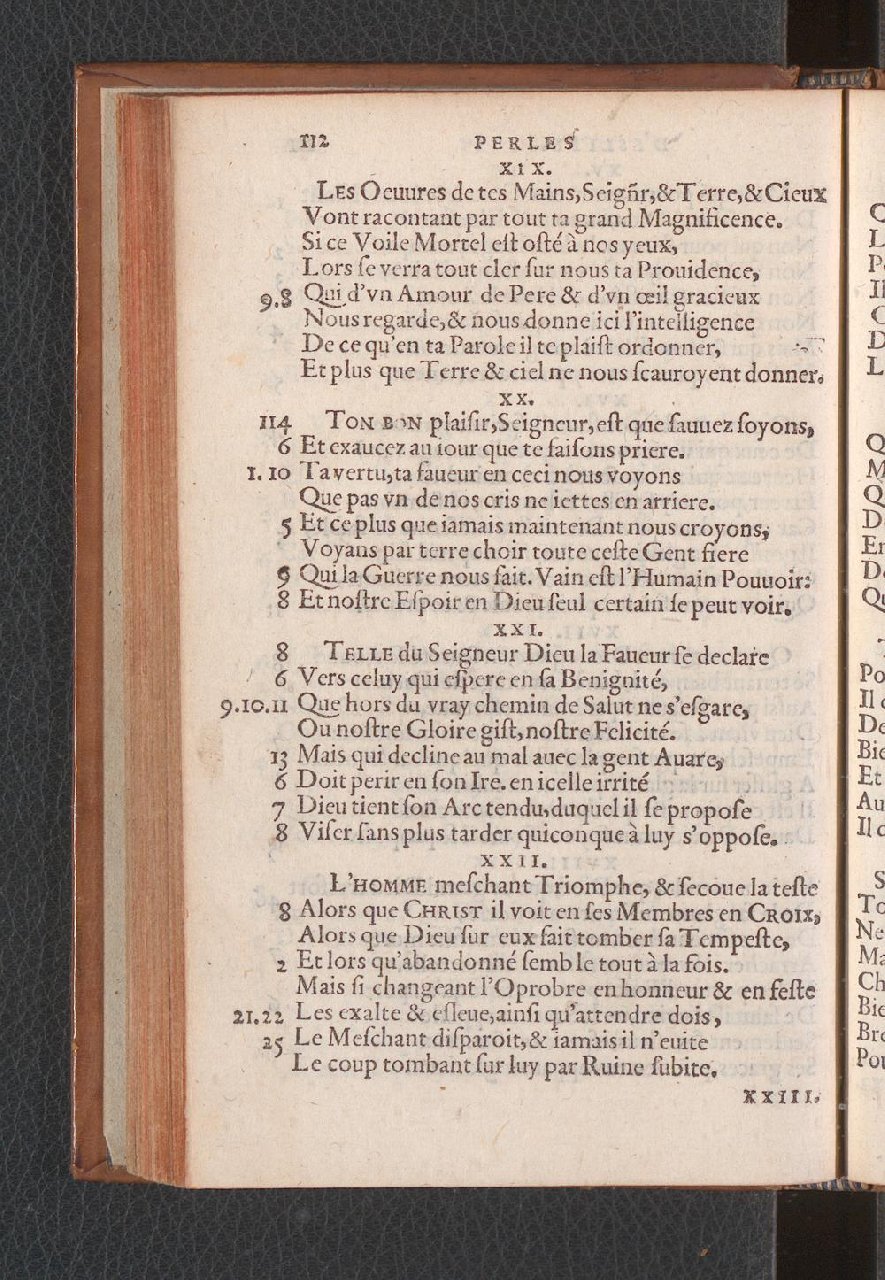 112 PERLES
XIX.
LES Oeuures de tes Mains, Seigñr, & Terre, & Cieux
Vont racontant par tout ta grand Magnificence.
Si ce Voile Mortel eſt oſté à nos yeux,
Lors ſe verra tout cler ſur nous ta Prouidence,
9.8 Qui d'vn Amour de Pere & d'vn œil gracieux
Nous regarde, & nous donne ici l'intelligence
De ce qu'en ta Parole il te plaiſt ordonner,
Et plus que Terre & ciel ne nous ſcauroyent donner.
XX.
114 TON BON plaiſir, Seigneur, eſt que ſauuez ſoyons,
6 Et exaucez au iour que te faiſons priere.
1. 10 Ta vertu, ta faueur en ceci nous voyons
Que pas vn de nos cris ne iettes en arriere.
5 Et ce plus que iamais maintenant nous croyons,
Voyans par terre choir toute ceſte Gent fiere
Qui la Guerre nous fait. Vain eſt l'Humain Pouuoir:
8 Et noſtre Eſpoir en Dieu ſeul certain ſe peut voir.
XXI.
8 TELLE du Seigneur Dieu la Faueur ſe declare
6 Vers celuy qui eſpere en ſa Benignité,
9.10.11 Que hors du vray chemin de Salut ne s'eſgare,
Ou noſtre Gloire giſt, noſtre Felicité.
13 Mais qui decline au mal auec la gent Auare,
6 Doit perir en ſon Ire. en icelle irrité
7 Dieu tient ſon Arc tendu, duquel il ſe propoſe
8 Viſer ſans plus tarder quiconque à luy s'oppoſe.
XXII.
L'HOMME meſchant Triomphe, & ſecoue la teſte
8 Alors que CHRIST il voit en ſes Membres en CROIX,
Alors que Dieu ſur eux fait tomber ſa Tempeſte,
2 Et lors qu'abandonné ſemble tout à la fois.
Mais ſi changeant l'Oprobre en honneur & en feſte
21.22 Les exalte & eſleue, ainſi qu'attendre dois,
25 Le Meſchant diſparoit, & iamais il n'euite
Le coup tombant ſur luy par Ruine ſubite.
XXIII.